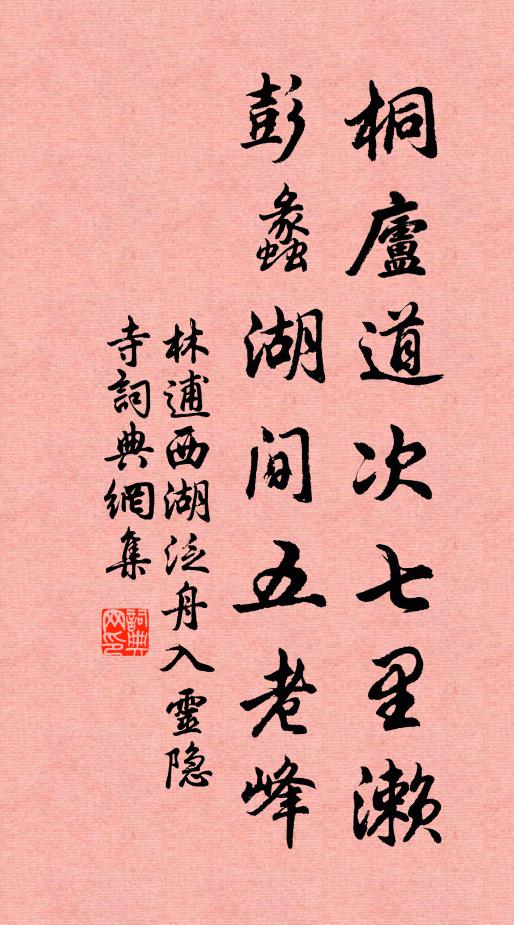 桐廬道次七里濑
彭蠡湖间五老峰
林逋西湖泛舟入靈隐
寺詞典網集
詞典網印